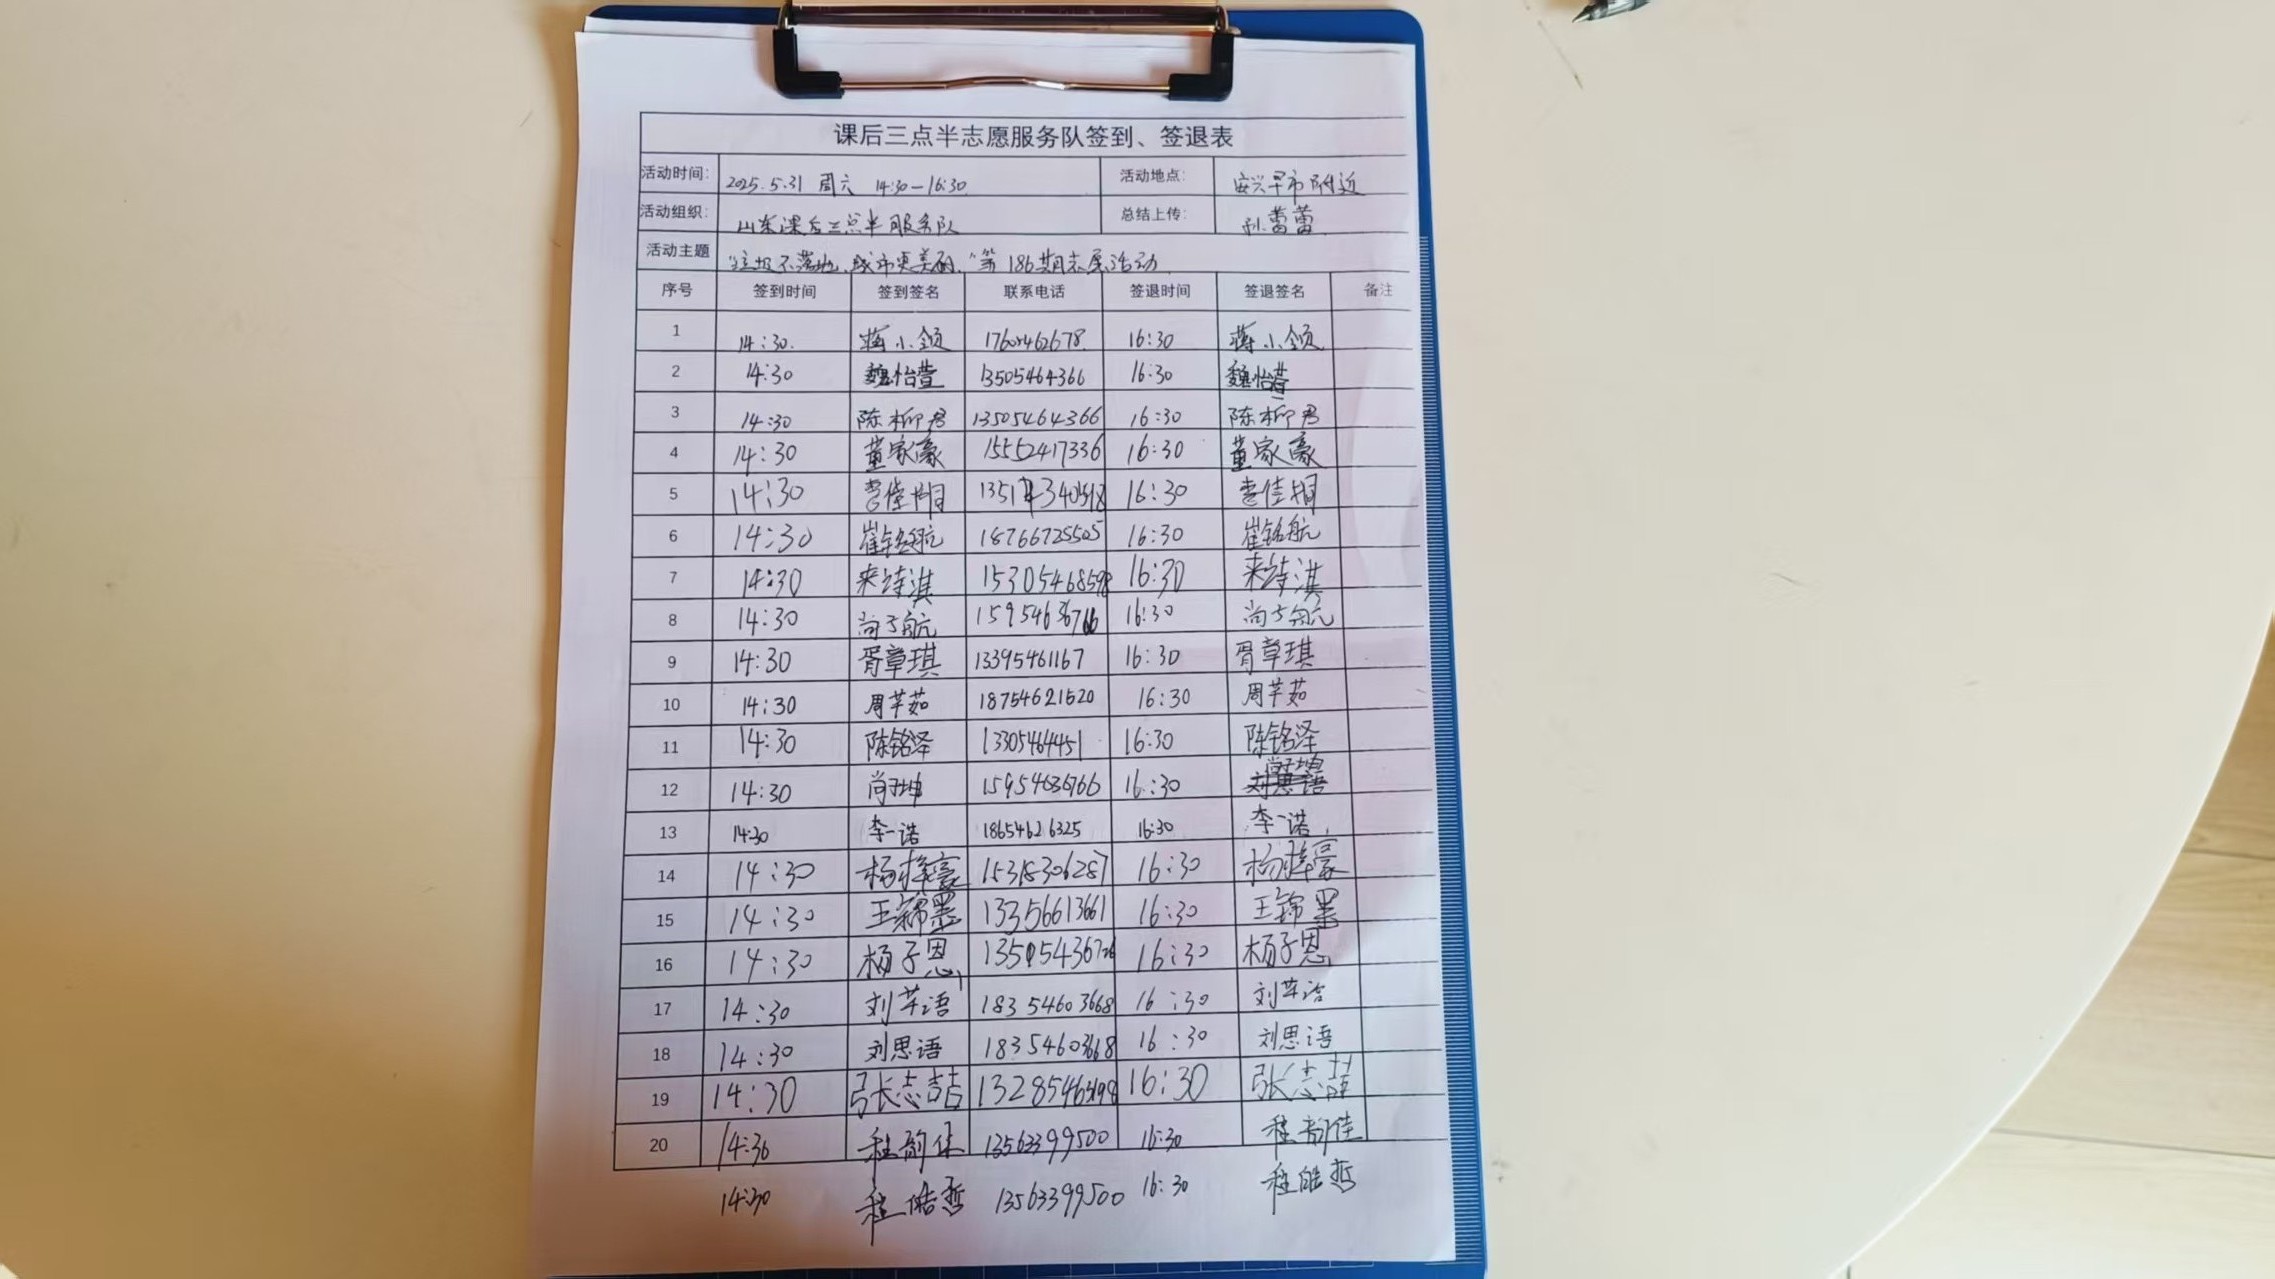 课后三点半志愿服务队签到、签退表
活动时间: 2025.5.31 周六 14:30—16:30 活动地点: 安兴早市附近
活动组织: 山东课后三点半服务队 总结上传: 孙蕾蕾
活动主题 "垃圾不落地,城市更美丽"第186期志愿活动
序号 签到时间 签到签名 联系电话 签退时间 签退签名 备注
1 14:30 蒋小领 16:30 蒋小领
2 14:30 魏怡萱 13505464366 16:30 魏怡萱
3 14:30 陈柳君 13505464366 16:30 陈柳君
4 14:30 董家豪 15552417336 16:30 董家豪
5 14:30 16:30
6 14:30 崔铭航 18766725505 16:30 崔铭航
7 14:30 来诗淇 16:30 来诗淇
8 14:30 尚子航 15954636766 16:30 尚子航
9 14:30 胥章琪 13395461167 16:30 胥章琪
10 14:30 周芊茹 18754621520 16:30 周芊茹
11 14:30 陈铭泽 13305464451 16:30 陈铭泽
12 14:30 尚子坤 15954636766 16:30 尚子坤
13 14:30 李一诺 18654626325 16:30 李一诺
14 14:30 杨梓豪 15318306287 16:30 杨梓豪
15 14:30 王锦墨 13356613661 16:30 王锦墨
16 14:30 杨子恩 16:30 杨子恩
17 14:30 刘芊语 18354603668 16:30 刘芊语
18 14:30 刘思语 18354603668 16:30 刘思语
19 14:30 张志喆 16:30 张志喆
20 14:30 程韵佳 13563399500 16:30 程韵佳
14:30 程皓哲 13563399500 16:30 程皓哲